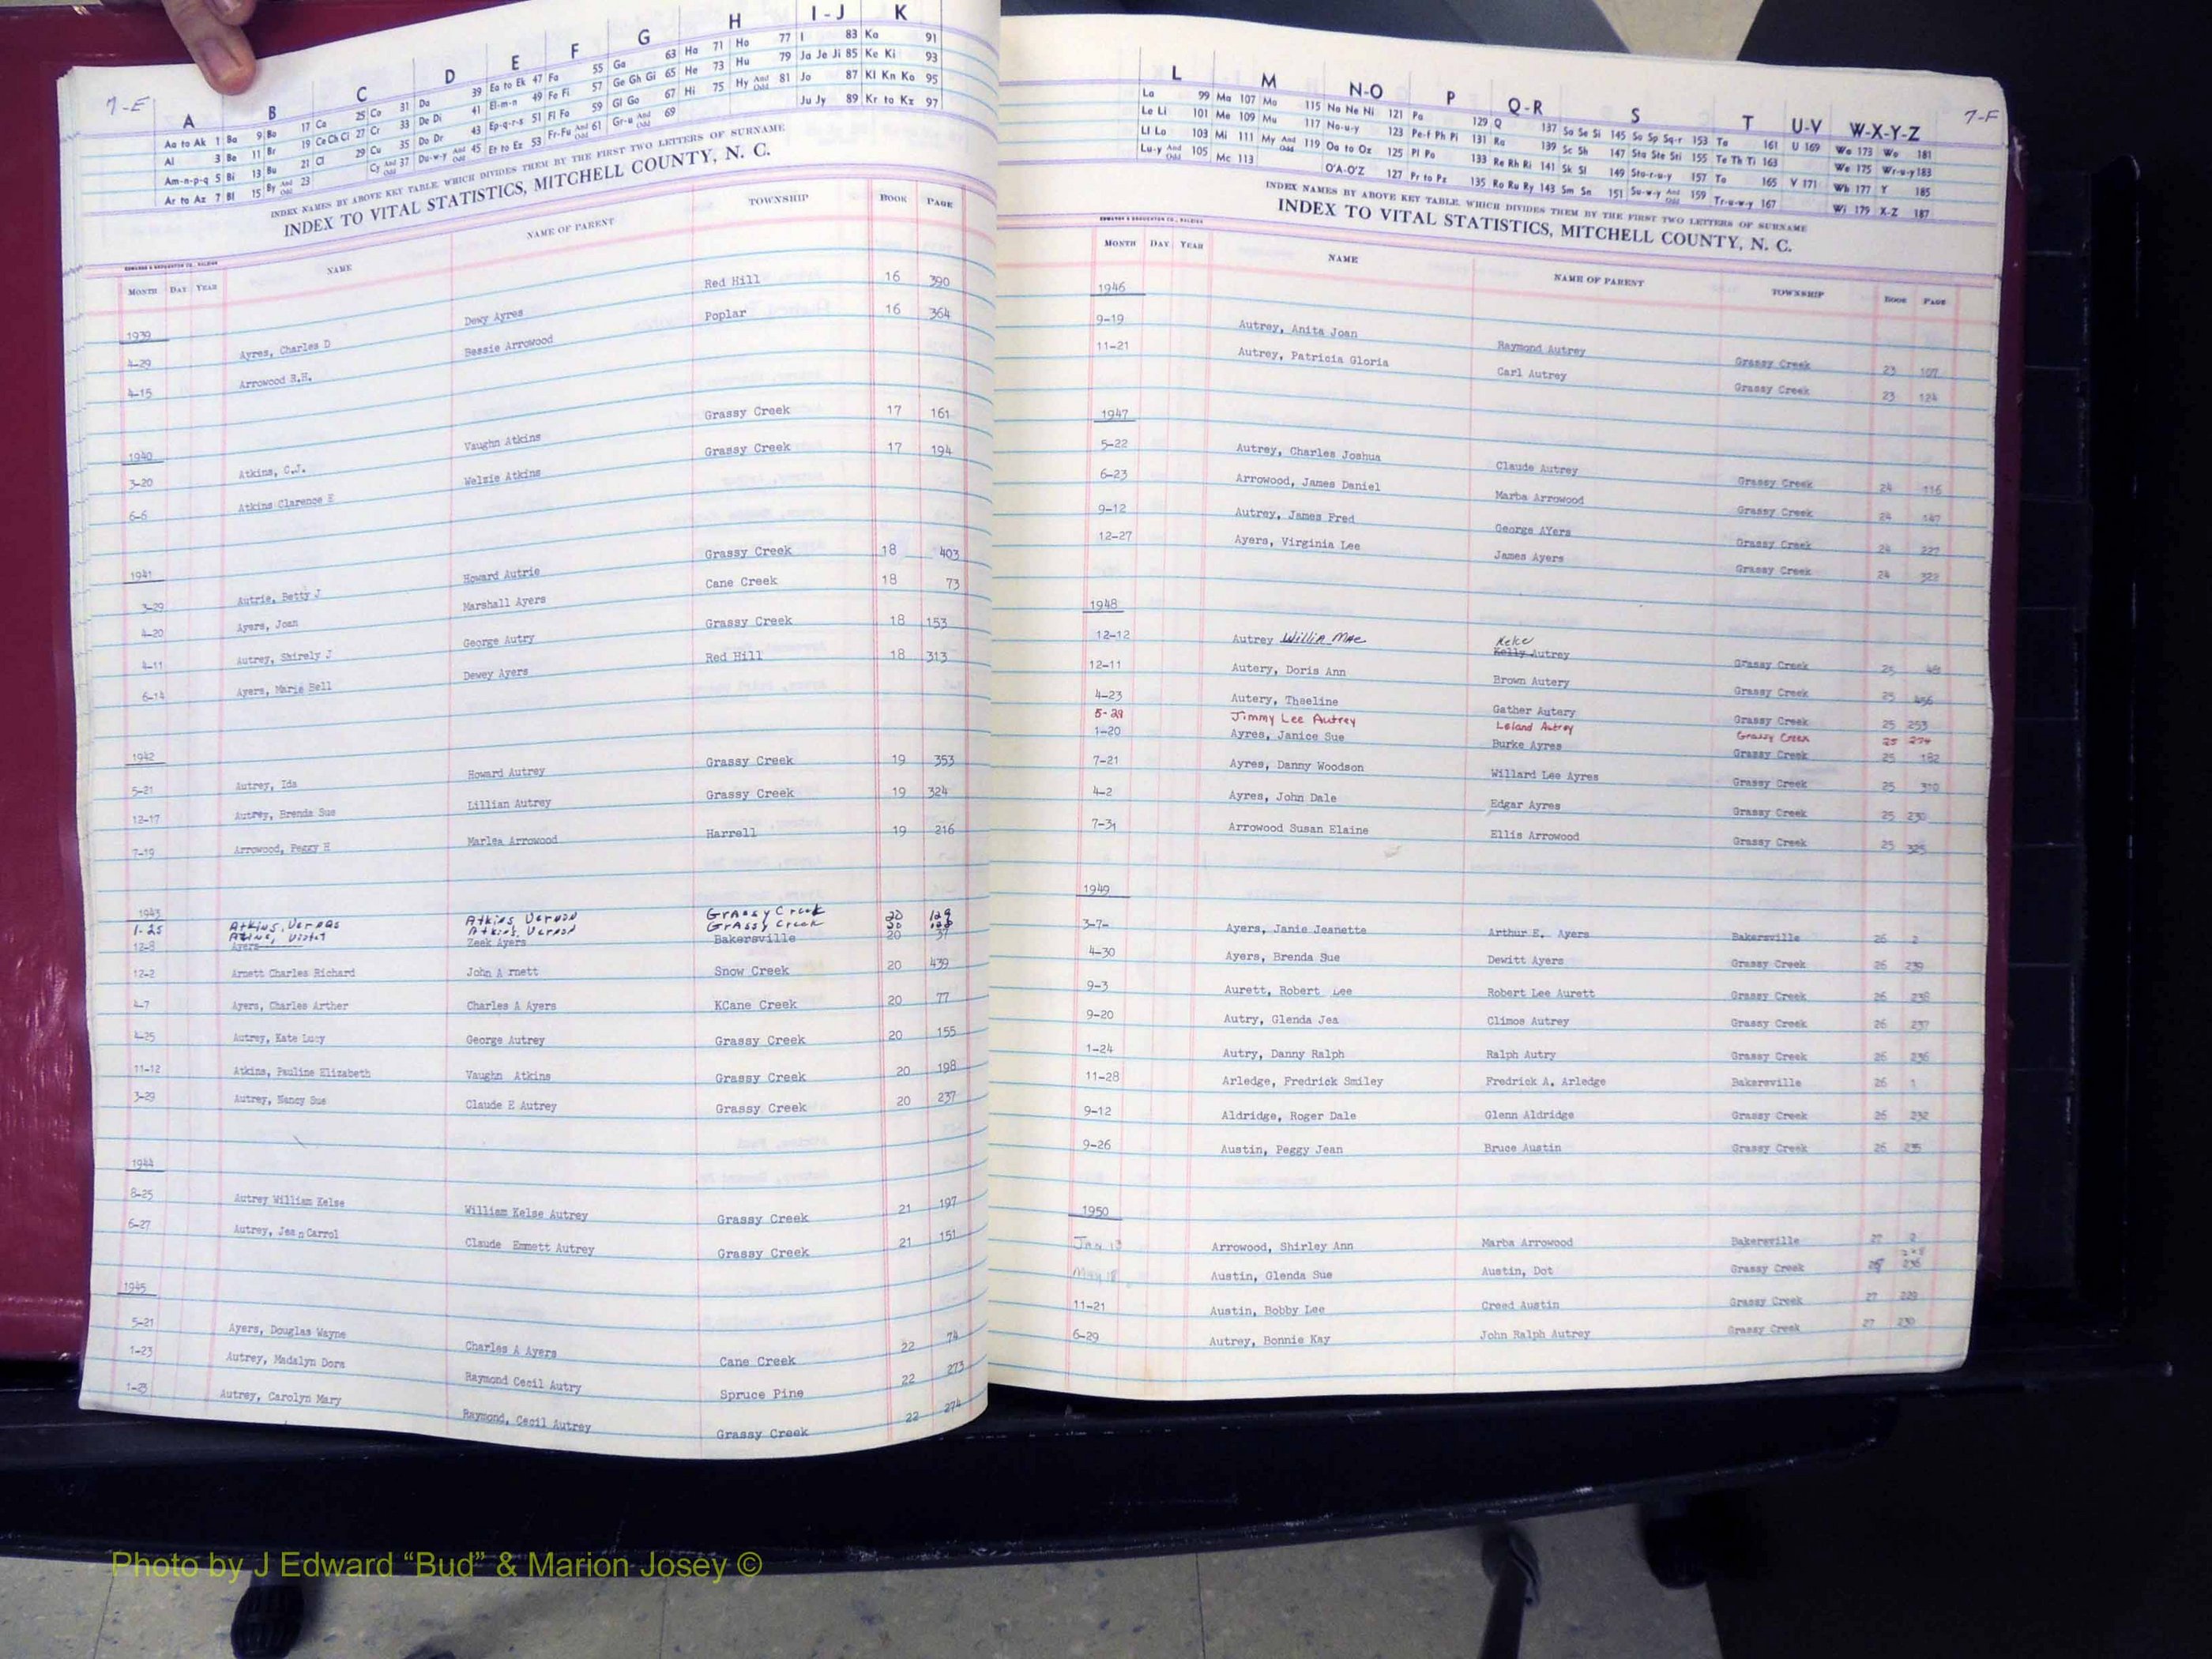 7-E
A B C D E F G H I-J K
Aa to Ak 1 Ba 9 Bo 17 Ca 25 Co 31 Da 39 Ea to Ek 47 Fa 55 Ga 63 Ha 71 Ho 77 I 83 Ka 91
Al 3 Be 11 Br 19 Ce Ch Ci 27 Cr 33 De Di 41 El-m-n 49 Fe Fi 57 Ge Gh Gi 65 He 73 Hu 79 Ja Je Ji 85 Ke Ki 93
Am-n-p-q 5 Bi 13 Bu 21 Cl 29 Cu 35 Do Dr 43 Ep-q-r-s 51 Fl Fo 59 Gl Go 67 Hi 75 Hy And Odd 81 Jo 87 Kl Kn Ko 95
Ar to Az 7 Bl 15 By And Odd 23 Cy And Odd 37 Du-w-y And Odd 45 Et to Ez 53 Fr-Fu And Odd 61 Gr-u And Odd 69 Ju Jy 89 Kr to Kz 97
INDEX NAMES BY ABOVE KEY TABLE, WHICH DIVIDES THEM BY THE FIRST TWO LETTERS OF SURNAME
INDEX TO VITAL STATISTICS, MITCHELL COUNTY, N. C.
EDWARDS & BROUGHTON CO., RALEIGH
MONTH DAY YEAR NAME NAME OF PARENT TOWNSHIP BOOK PAGE
1939
4-29 Ayres, Charles D Dewy Ayres Red Hill 16 390
4-15 Arrowood R.H. Bessie Arrowood Poplar 16 364
1940
3-20 Atkins, C.J. Vaughn Atkins Grassy Creek 17 161
6-6 Atkins Clarence E Welzie Atkins Grassy Creek 17 194
1941
3-29 Autrie, Betty J Howard Autrie Grassy Creek 18 403
4-20 Ayers, Joan Marshall Ayers Cane Creek 18 73
4-11 Autrey, Shirely J George Autry Grassy Creek 18 153
6-14 Ayers, Marie Bell Dewey Ayers Red Hill 18 313
1942
5-21 Autrey, Ida Howard Autrey Grassy Creek 19 353
12-17 Autrey, Brenda Sue Lillian Autrey Grassy Creek 19 324
7-19 Arrowood, Peggy H Marlea Arrowood Harrell 19 216
1943
1-25 Atkins, Vernas Atkins, Vernon Grassy Creek 20 129
Atkins, Violet Atkins, Vernon Grassy Creek 20
12-8 Ayers Zeek Ayers Bakersville 20 37
12-2 Arnett Charles Richard John A rnett Snow Creek 20 439
4-7 Ayers, Charles Arther Charles A Ayers KCane Creek 20 77
4-25 Autrey, Kate Lucy George Autrey Grassy Creek 20 155
11-12 Atkins, Pauline Elizabeth Vaughn Atkins Grassy Creek 20 198
3-29 Autrey, Nancy Sue Claude E Autrey Grassy Creek 20 237
1944
8-25 Autrey William Kelse William Kelse Autrey Grassy Creek 21 197
6-27 Autrey, Jean Carrol Claude Emmett Autrey Grassy Creek 21 151
1945
5-21 Ayers, Douglas Wayne Charles A Ayers Cane Creek 22 74
1-23 Autrey, Madalyn Dora Raymond Cecil Autry Spruce Pine 22 273
1-23 Autrey, Carolyn Mary Raymond, Cecil Autrey Grassy Creek 22 274
7-F
L M N-O P Q-R S T U-V W-X-Y-Z
La 99 Ma 107 Mo 115 Na Ne Ni 121 Pa 129 Q 137 Sa Se Si 145 So Sp Sq-r 153 Ta 161 U 169 Wa 173 Wo 181
Le Li 101 Me 109 Mu 117 No-u-y 123 Pe-f Ph Pi 131 Ra 139 Sc Sh 147 Sta Ste Sti 155 Te Th Ti 163 We 175 Wr-u-y 183
Ll Lo 103 Mi 111 My And Odd 119 Oa to Oz 125 Pl Po 133 Re Rh Ri 141 Sk Sl 149 Sto-r-u-y 157 To 165 V 171 Wh 177 Y 185
Lu-y And Odd 105 Mc 113 O'A-O'Z 127 Pr to Pz 135 Ro Ru Ry 143 Sm Sn 151 Su-w-y And Odd 159 Tr-u-w-y 167 Wi 179 X-Z 187
INDEX NAMES BY ABOVE KEY TABLE, WHICH DIVIDES THEM BY THE FIRST TWO LETTERS OF SURNAME
INDEX TO VITAL STATISTICS, MITCHELL COUNTY, N. C.
EDWARDS & BROUGHTON CO., RALEIGH
MONTH DAY YEAR NAME NAME OF PARENT TOWNSHIP BOOK PAGE
1946
9-19 Autrey, Anita Joan Raymond Autrey Grassy Creek 23 107
11-21 Autrey, Patricia Gloria Carl Autrey Grassy Creek 23 124
1947
5-22 Autrey, Charles Joshua Claude Autrey Grassy Creek 24 116
6-23 Arrowood, James Daniel Marba Arrowood Grassy Creek 24 147
9-12 Autrey, James Fred George AYers Grassy Creek 24 227
12-27 Ayers, Virginia Lee James Ayers Grassy Creek 24 322
1948
12-12 Autrey Willia Mae Keke Kelly Autrey Grassy Creek 25
12-11 Autery, Doris Ann Brown Autery Grassy Creek 25 456
4-23 Autery, Theeline Gather Autery Grassy Creek 25 253
5-29 Jimmy Lee Autrey Leland Autrey Grassy Creek 25 274
1-20 Ayres, Janice Sue Burke Ayres Grassy Creek 25 182
7-21 Ayres, Danny Woodson Willard Lee Ayres Grassy Creek 25 310
4-2 Ayres, John Dale Edgar Ayres Grassy Creek 25 230
7-31 Arrowood Susan Elaine Ellis Arrowood Grassy Creek 25 325
1949
3-7- Ayers, Janie Jeanette Arthur E. Ayers Bakersville 26 2
4-30 Ayers, Brenda Sue Dewitt Ayers Grassy Creek 26 239
9-3 Aurett, Robert Lee Robert Lee Aurett Grassy Creek 26 238
9-20 Autry, Glenda Jea Climos Autrey Grassy Creek 26 237
1-24 Autry, Danny Ralph Ralph Autry Grassy Creek 26 236
11-28 Arledge, Fredrick Smiley Fredrick A. Arledge Bakersville 26 1
9-12 Aldridge, Roger Dale Glenn Aldridge Grassy Creek 26 232
9-26 Austin, Peggy Jean Bruce Austin Grassy Creek 26 235
1950
Jan 13 Arrowood, Shirley Ann Marba Arrowood Bakersville 27 2
May 18 Austin, Glenda Sue Austin, Dot Grassy Creek
11-21 Austin, Bobby Lee Creed Austin Grassy Creek 27 229
6-29 Autrey, Bonnie Kay John Ralph Autrey Grassy Creek 27 230
Photo by J Edward “Bud” & Marion Josey ©